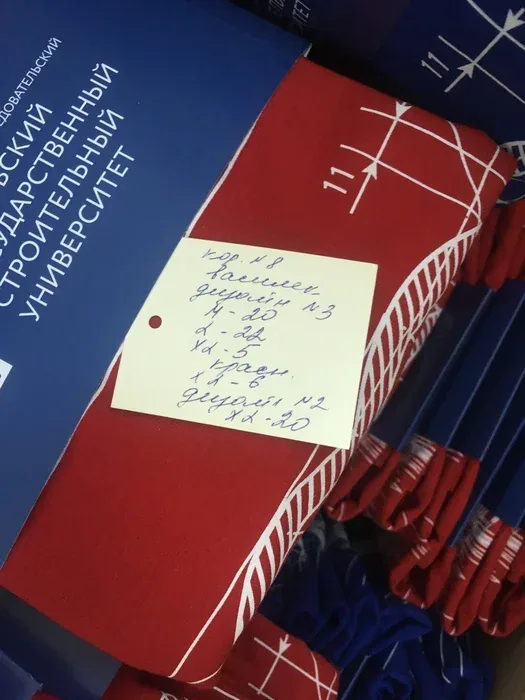 ДОВАТЕЛЬСКИЙ
ВСКИЙ
УДАРСТВЕННЫЙ
СТРОИТЕЛЬНЫЙ
УНИВЕРСИТЕТ
11
11
кор. №8
василек
дизайн №3
М-20
L-22
XL-5
красн.
XL-6
дизайн №2
XL-20